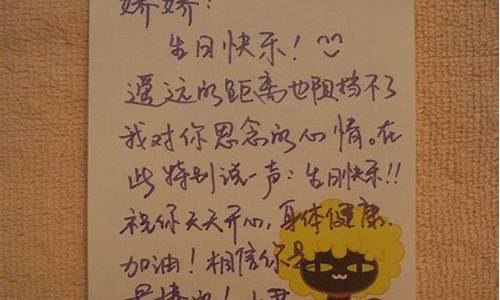 娇娇：
生日快乐！
遥远的距离也阻挡不了
我对你思念的心情。在
此特别说一声：生日快乐!!
祝你天天开心，身体健康.
加油！相信你是
最棒的！